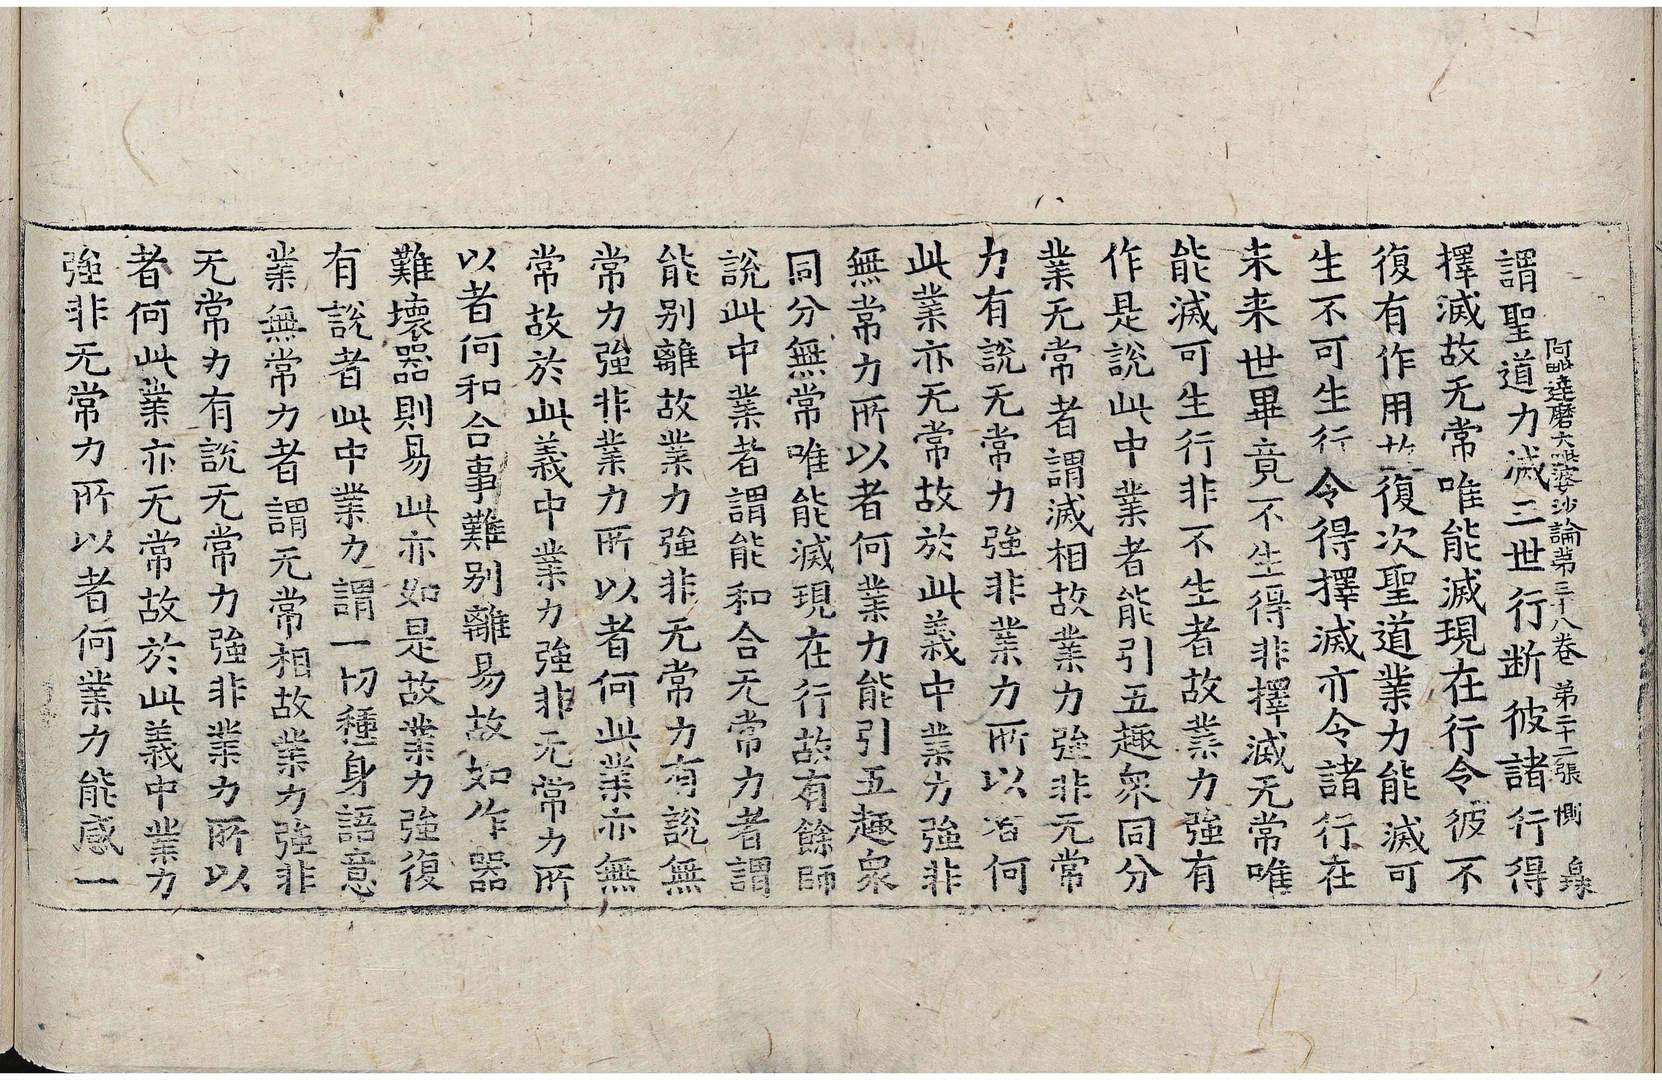 阿毗達磨大毗婆沙論第三十八卷 第二十二張 惻
謂聖道力滅三世行断彼諸行得
擇滅故无常唯能滅現在行令彼不
復有作用故復次聖道業力能滅可
生不可生行令得擇滅亦令諸行在
未来世畢竟不生得非擇滅无常唯
能滅可生行非不生者故業力強有
作是說此中業者能引五趣衆同分
業无常者謂滅相故業力強非无常
力有說无常力強非業力所以者何
此業亦无常故於此義中業力強非
無常力所以者何業力能引五趣衆
同分無常唯能滅現在行故有餘師
說此中業者謂能和合无常力者謂
能别離故業力強非无常力有說無
常力強非業力所以者何此業亦無
常故於此義中業力強非无常力所
以者何和合事難别離易故如作器
難壞器則易此亦如是故業力強復
有說者此中業力謂一切種身語意
業無常力者謂无常相故業力強非
无常力有說无常力強非業力所以
者何此業亦无常故於此義中業力
強非无常力所以者何業力能感一